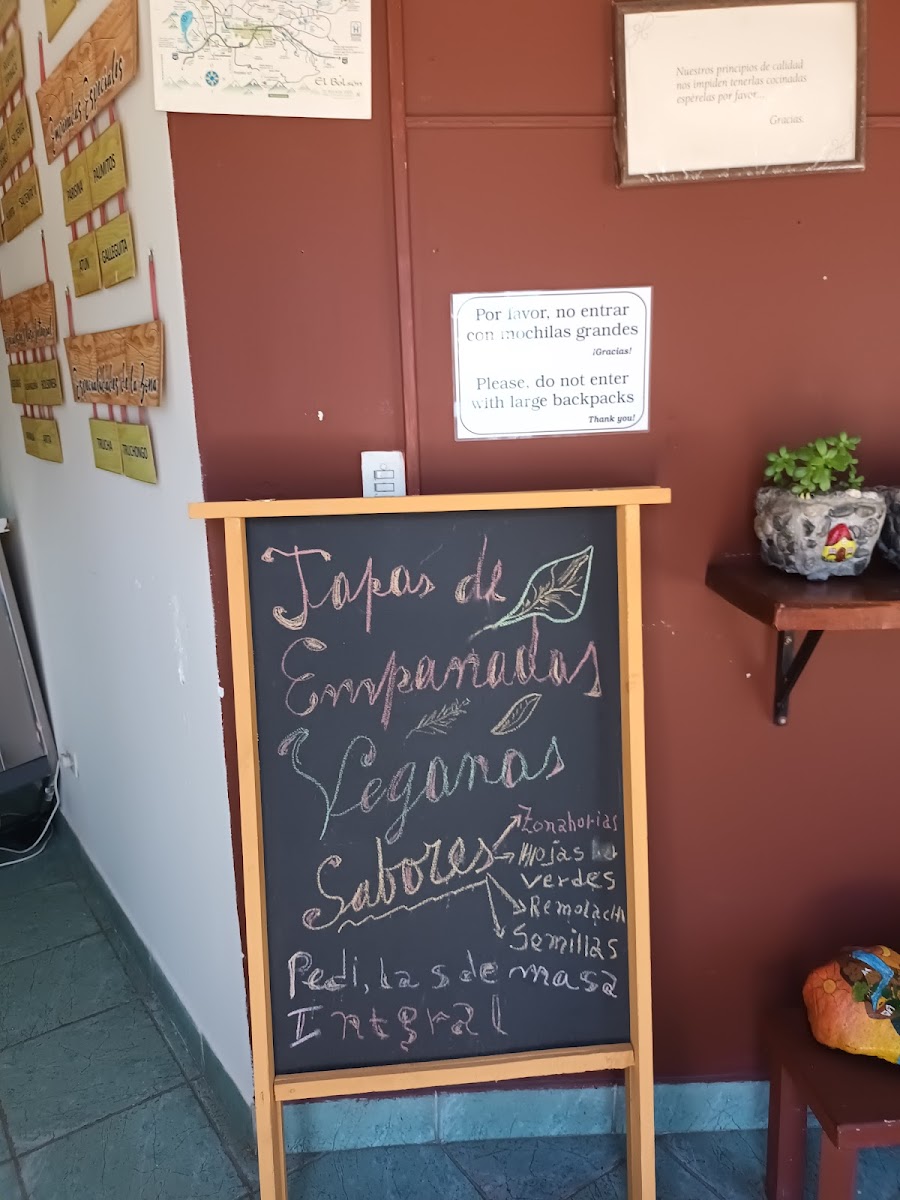 El Bolsón
Nuestros principios de calidad
nos impiden tenerlas cocinadas
espérelas por favor...
Gracias.
Empanadas Especiales
PARISINA
PALMITOS
ATUN
GALLEGUITA
Especialidades de la Zona
TRUCHA
TRUCHONGO
Por favor, no entrar
con mochilas grandes
¡Gracias!
Please, do not enter
with large backpacks
Thank you!
Tapas de
Empanadas
Veganas
Sabores
Zonahorias
Hojas
verdes
Remolacha
Semillas
Pedi, la s de masa
Integral